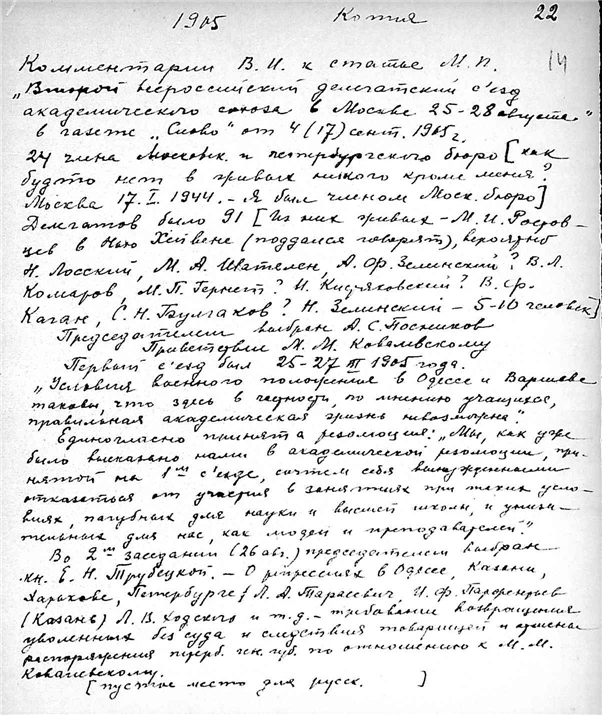 1905 Копия 22
14
Комментарии В.И. к статье М.П.
„Второй всероссийский делегатский с'езд
академического союза в Москве 25-28 августа"
в газете „Слово" от 4 (17) сент. 1905 г.
24 члена Московск. и петербургского бюро [как
будто нет в живых никого кроме меня?
Москва 17.I.1944. - Я был членом Моск. бюро]
Делегатов было 91 [Из них живых - М.И. Ростов-
цев в Нью Хейвене (поддался говорят), вероятно
Н. Лосский, М.А. Шателен, А.Ф. Зелинский? В.Л.
Комаров, М.П. Гернет? И. Кистяковский? В.Ф.
Каган, С.Н. Булгаков? Н. Зелинский - 5-10 человек]
Председателем выбран А.С. Посников
Приветствие М.М. Ковалевскому
Первый с'езд был 25-27 III 1905 года.
„Условия военного положения в Одессе и Варшаве
таковы, что здесь в частности, по мнению учащихся,
правильная академическая жизнь невозможна".
Единогласно принята резолюция: „Мы, как уже
было высказано нами в академической резолюции, при-
нятой на 1м с'езде, сочтем себя вынужденными
отказаться от участия в занятиях при таких усло-
виях, пагубных для науки и высшей школы, и унизи-
тельных для нас, как людей и преподавателей".
Во 2м заседании (26 авг.) председателем выбран
кн. Е.Н. Трубецкой. - О репрессиях в Одессе, Казани,
Харькове, Петербурге / Л.А. Тарасевич, И.Ф.
(Казань) Л.В. Ходского и т.д. - требование возвращения
уволенных без суда и следствия товарищей и отмены
распоряжения петерб. ген. губ. по отношению к М.М.
Ковалевскому.
[пустое место для русск. ]